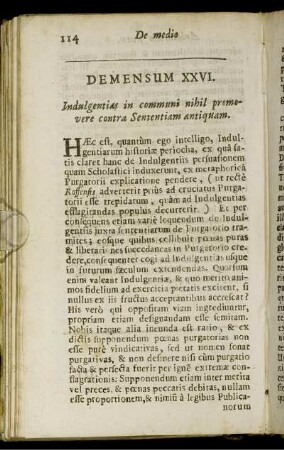 114 De medio
DEMENSUM XXVI.
Indulgentias in communi nihil promo-
vere contra Sententiam antiquam.
HÆc est, quantùm ego intelligo, Indul-
gentiarum historiæ periocha, ex quâ sa-
tis claret hanc de Indulgentiis persuationem
quam Scholastici induxerunt, ex metaphoricâ
Purgatorii explicatione pendere, (ut rectè
Roffensis adverterit priùs ad cruciatus Purga-
torii esse trepidatum, quàm ad Indulgentias
efflagitandas populus decurrerit.) Et per
consequens etiam variè loquendum de Indul-
gentiis juxta sententiarum de Purgatorio tra-
mites; eosque quibus collibuit pœnas puras
& liberationes succedaneas in Purgatorio cre-
dere, consequenter cogi ad Indulgentias usque
in futurum sæculum extendendas. Quorsum
enim valeant Indulgentiæ, & quo meriti ani-
mos fidelium ad exercitia pietatis excitent, si
nullus ex iis fructus acceptantibus accrescat?
His verò qui oppositam viam ingrediuntur,
propriam etiam designandam esse semitam.
Nobis itaque alia ineunda est ratio, & ex
dictis supponendum pœnas purgatorias non
esse purè vindicativas, sed ut non en fonat
purgativas, & non definere nisi cùm purgatio
facta & perfecta fuerit per ignē extremæ con-
flagrationis: Supponendum etiam inter merita
vel preces, & pœnas peccatis debitas, nullam
esse proportionem, & nimiū à legibus Publica-
norum